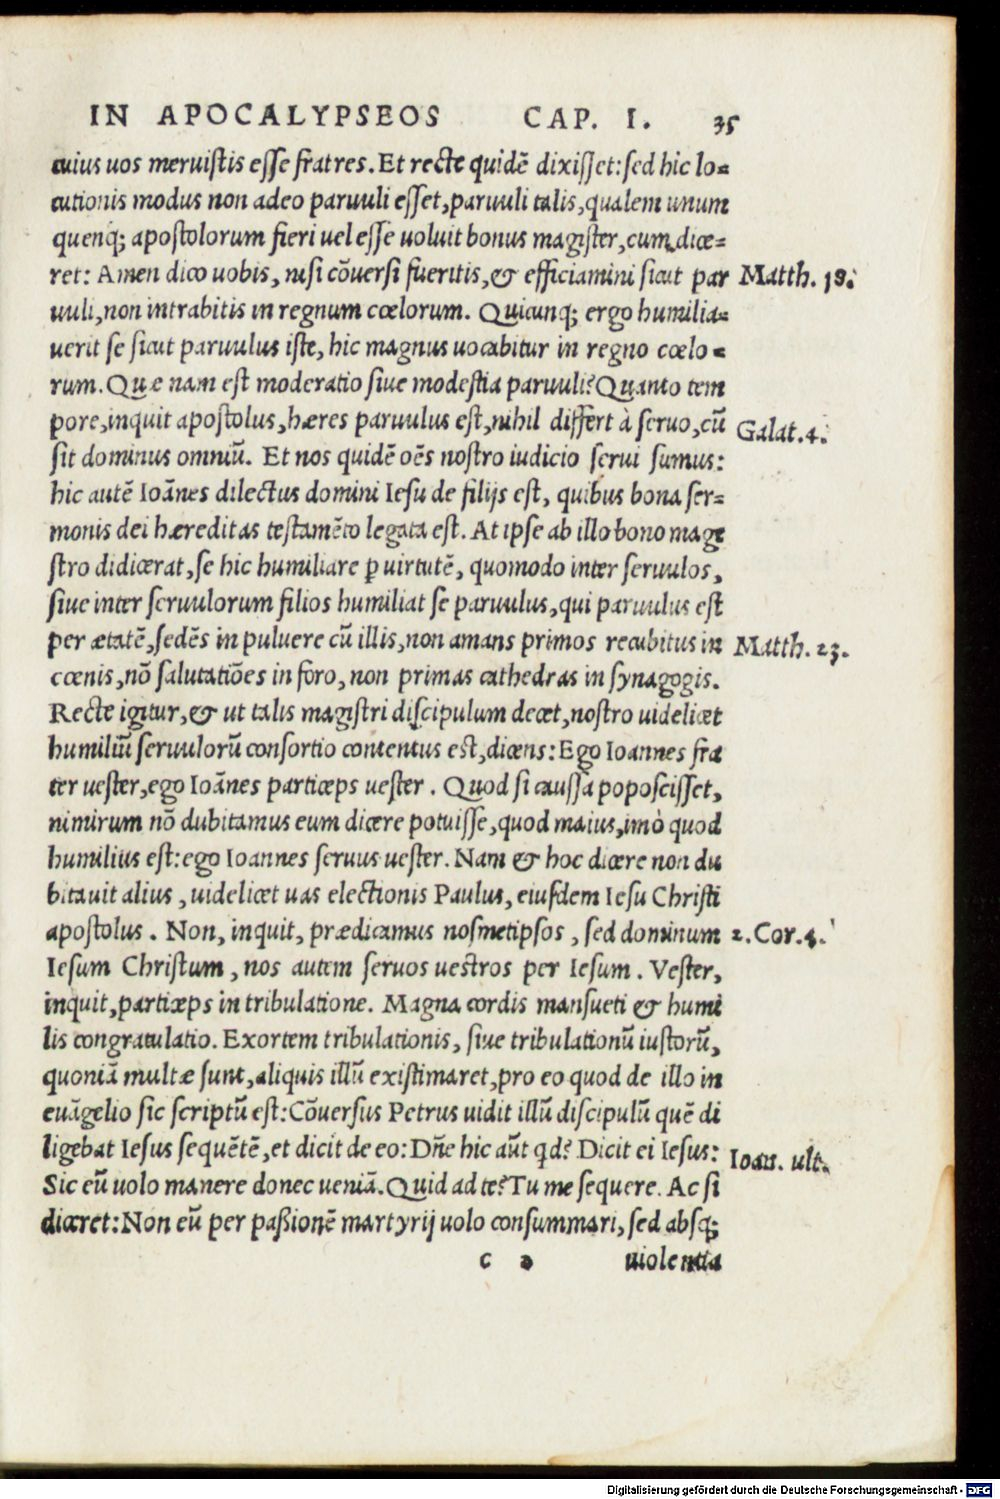 IN APOCALYPSEOS CAP. I. 35
cuius uos meruistis esse fratres. Et recte quidẽ dixisset: sed hic lo=
cutionis modus non adeo paruuli esset, paruuli talis, qualem unum
quenq; apostolorum fieri uel esse uoluit bonus magister, cum dice=
ret: Amen dico uobis, nisi cõuersi fueritis, & efficiamini sicut par Matth. 18.
uuli, non intrabitis in regnum cœlorum. Quicunq; ergo humilia=
uerit se sicut paruulus iste, hic magnus uocabitur in regno cœlo=
rum. Quæ nam est moderatio siue modestia paruuli? Quanto tem
pore, inquit apostolus, hæres paruulus est, nihil differt à seruo, cũ Galat. 4.
sit dominus omniũ. Et nos quidẽ oẽs nostro iudicio serui sumus:
hic autẽ Ioãnes dilectus domini Iesu de filijs est, quibus bona ser=
monis dei hæreditas testamẽto legata est. At ipse ab illo bono magi
stro didicerat, se hic humiliare ꝑ uirtutẽ, quomodo inter seruulos,
siue inter seruulorum filios humiliat se paruulus, qui paruulus est
per ætatẽ, sedẽs in puluere cũ illis, non amans primos recubitus in Matth. 23.
cœnis, nõ salutatiões in foro, non primas cathedras in synagogis.
Recte igitur, & ut talis magistri discipulum decet, nostro uidelicet
humiliũ seruulorũ consortio contentus est, dicens: Ego Ioannes fra
ter uester, ego Ioãnes particeps uester. Quod si caussa poposcisset,
nimirum nõ dubitamus eum dicere potuisse, quod maius, imò quod
humilius est: ego Ioannes seruus uester. Nam & hoc dicere non du
bitauit alius, uidelicet uas electionis Paulus, eiusdem Iesu Christi
apostolus. Non, inquit, prædicamus nosmetipsos, sed dominum 2. Cor. 4.
Iesum Christum, nos autem seruos uestros per Iesum. Vester,
inquit, particeps in tribulatione. Magna cordis mansueti & humi
lis congratulatio. Exortem tribulationis, siue tribulationũ iustorũ,
quoniã multæ sunt, aliquis illũ existimaret, pro eo quod de illo in
euãgelio sic scriptũ est: Cõuersus Petrus uidit illũ discipulũ quẽ di
ligebat Iesus sequẽtẽ, et dicit de eo: Dñe hic aũt qd? Dicit ei Iesus: Ioan. ult.
Sic eũ uolo manere donec ueniã. Quid ad te? Tu me sequere. Ac si
diceret: Non eũ per paßionẽ martyrij uolo consummari, sed absq;
c 2 uiolentia
Digitalisierung gefördert durch die Deutsche Forschungsgemeinschaft - DFG